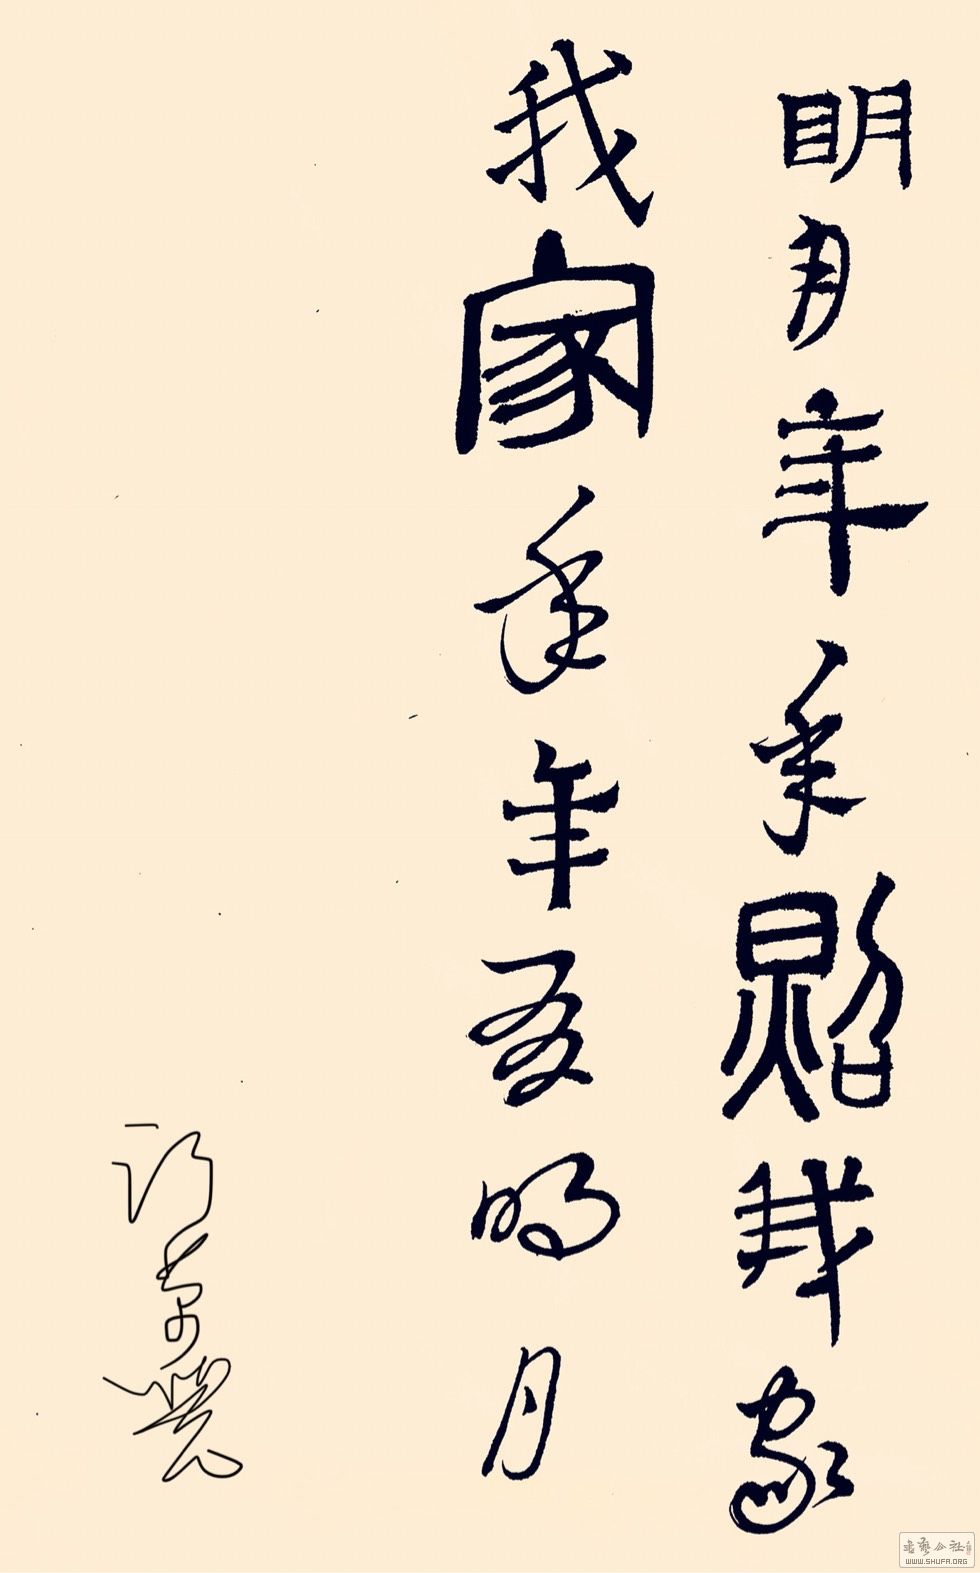 明月年年照我家
我家年年吾明月
WWW.SHUFA.ORG